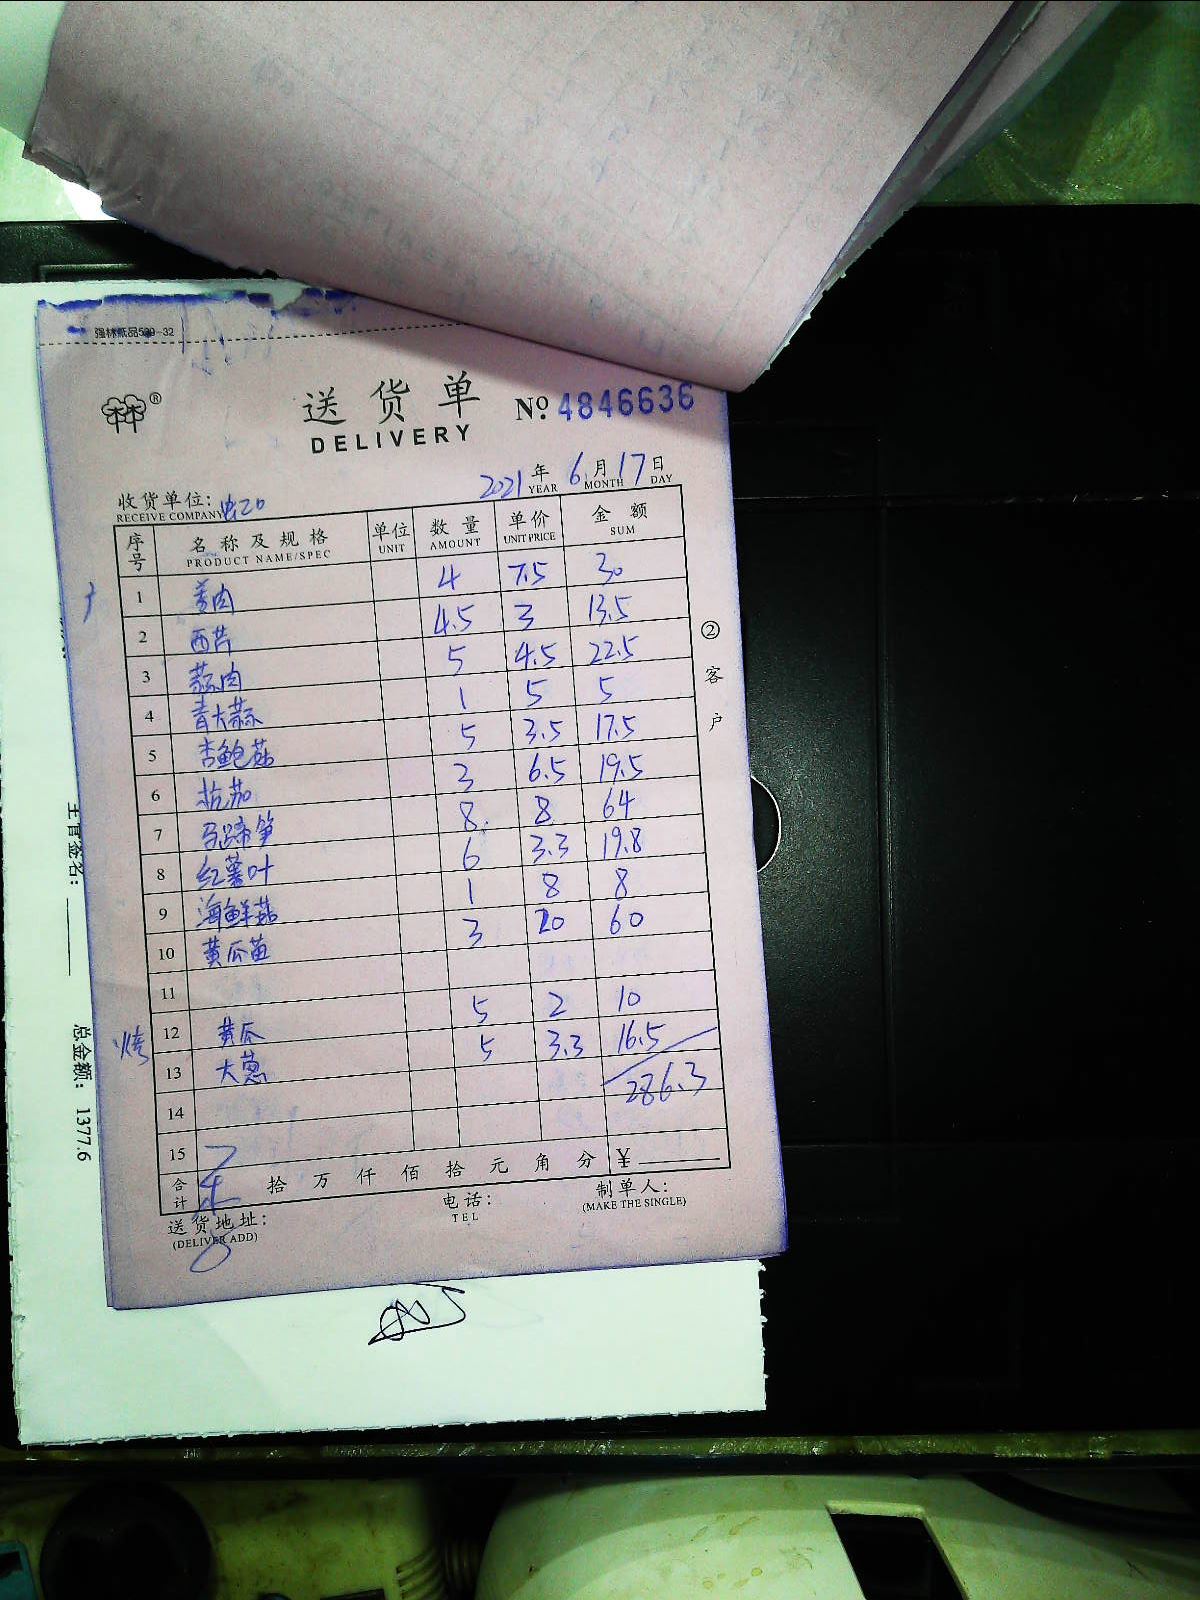 强林纸品529-32
® 送货单 Nº 4846636
DELIVERY
2021年 6月 17日
YEAR MONTH DAY
收货单位:
RECEIVE COMPANY
序号 名称及规格 单位 数量 单价 金额
PRODUCT NAME/SPEC UNIT AMOUNT UNIT PRICE SUM
1 姜肉 4 7.5 30
2 西芹 4.5 3 13.5
3 蒜肉 5 4.5 22.5
4 青大蒜 1 5 5
5 杏鲍菇 5 3.5 17.5
6 杭茄 3 6.5 19.5
7 马蹄笋 8 8 64
8 红薯叶 6 3.3 19.8
9 海鲜菇 1 8 8
10 黄瓜苗 3 20 60
11
烤 12 黄瓜 5 2 10
13 大葱 5 3.3 16.5
14 286.3
15
合计 拾万仟佰拾元角分 ¥
送货地址: 电话: 制单人:
(DELIVER ADD) TEL (MAKE THE SINGLE)
②客户
主管签名:
总金额: 1377.6